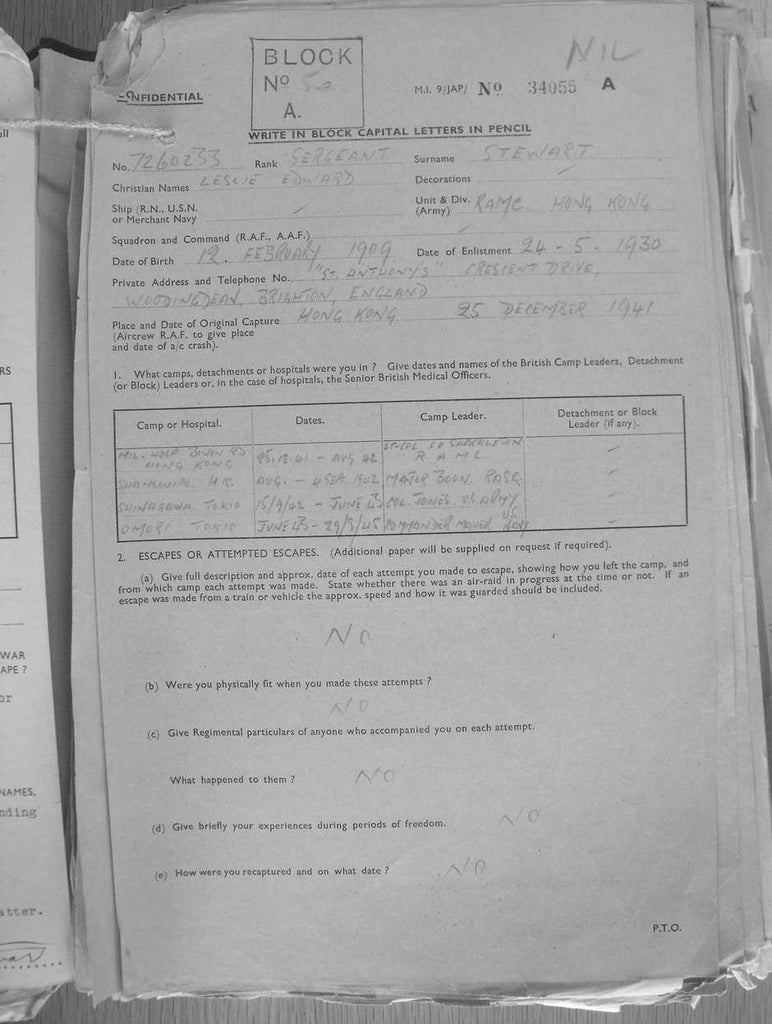 BLOCK
No 50
A.
NIL
CONFIDENTIAL
M.I. 9/JAP/ No 34055 A
WRITE IN BLOCK CAPITAL LETTERS IN PENCIL
No. 7260233 Rank SERGEANT Surname STEWART
Christian Names LESLIE EDWARD Decorations
Ship (R.N., U.S.N. or Merchant Navy
Unit & Div. (Army) RAMC HONG KONG
Squadron and Command (R.A.F., A.A.F.)
Date of Birth 12. FEBRUARY 1909 Date of Enlistment 24 - 5 - 1930
Private Address and Telephone No. "ST. ANTHONY'S" CRESCENT DRIVE,
WOODINGDEAN, BRIGHTON, ENGLAND
Place and Date of Original Capture HONG KONG 25 DECEMBER 1941
(Aircrew R.A.F. to give place
and date of a/c crash).
1. What camps, detachments or hospitals were you in ? Give dates and names of the British Camp Leaders, Detachment
(or Block) Leaders or, in the case of hospitals, the Senior British Medical Officers.
Camp or Hospital. Dates. Camp Leader. Detachment or Block Leader (if any).
MIL. HOSP BOWEN RD HONG KONG 25.12.41 - AUG 42 LT-COL SHACKLETON RAMC
SHAMSHUIPO, H.K. AUG. - 4 SEP. 1942 MAJOR BOON. RASC
SHINAGAWA TOKIO 15/9/42 - JUNE 43 COL. JONES. US ARMY
OMORI TOKIO JUNE 43 - 29/8/45 COMMANDER MAHER US NAVY
2. ESCAPES OR ATTEMPTED ESCAPES. (Additional paper will be supplied on request if required).
(a) Give full description and approx. date of each attempt you made to escape, showing how you left the camp, and
from which camp each attempt was made. State whether there was an air-raid in progress at the time or not. If an
escape was made from a train or vehicle the approx. speed and how it was guarded should be included.
NO
(b) Were you physically fit when you made these attempts ?
NO
(c) Give Regimental particulars of anyone who accompanied you on each attempt.
What happened to them ? NO
(d) Give briefly your experiences during periods of freedom. NO
(e) How were you recaptured and on what date ? NO
P.T.O.
ll
RS
WAR
APE ?
or
NAMES,
nding
atter.